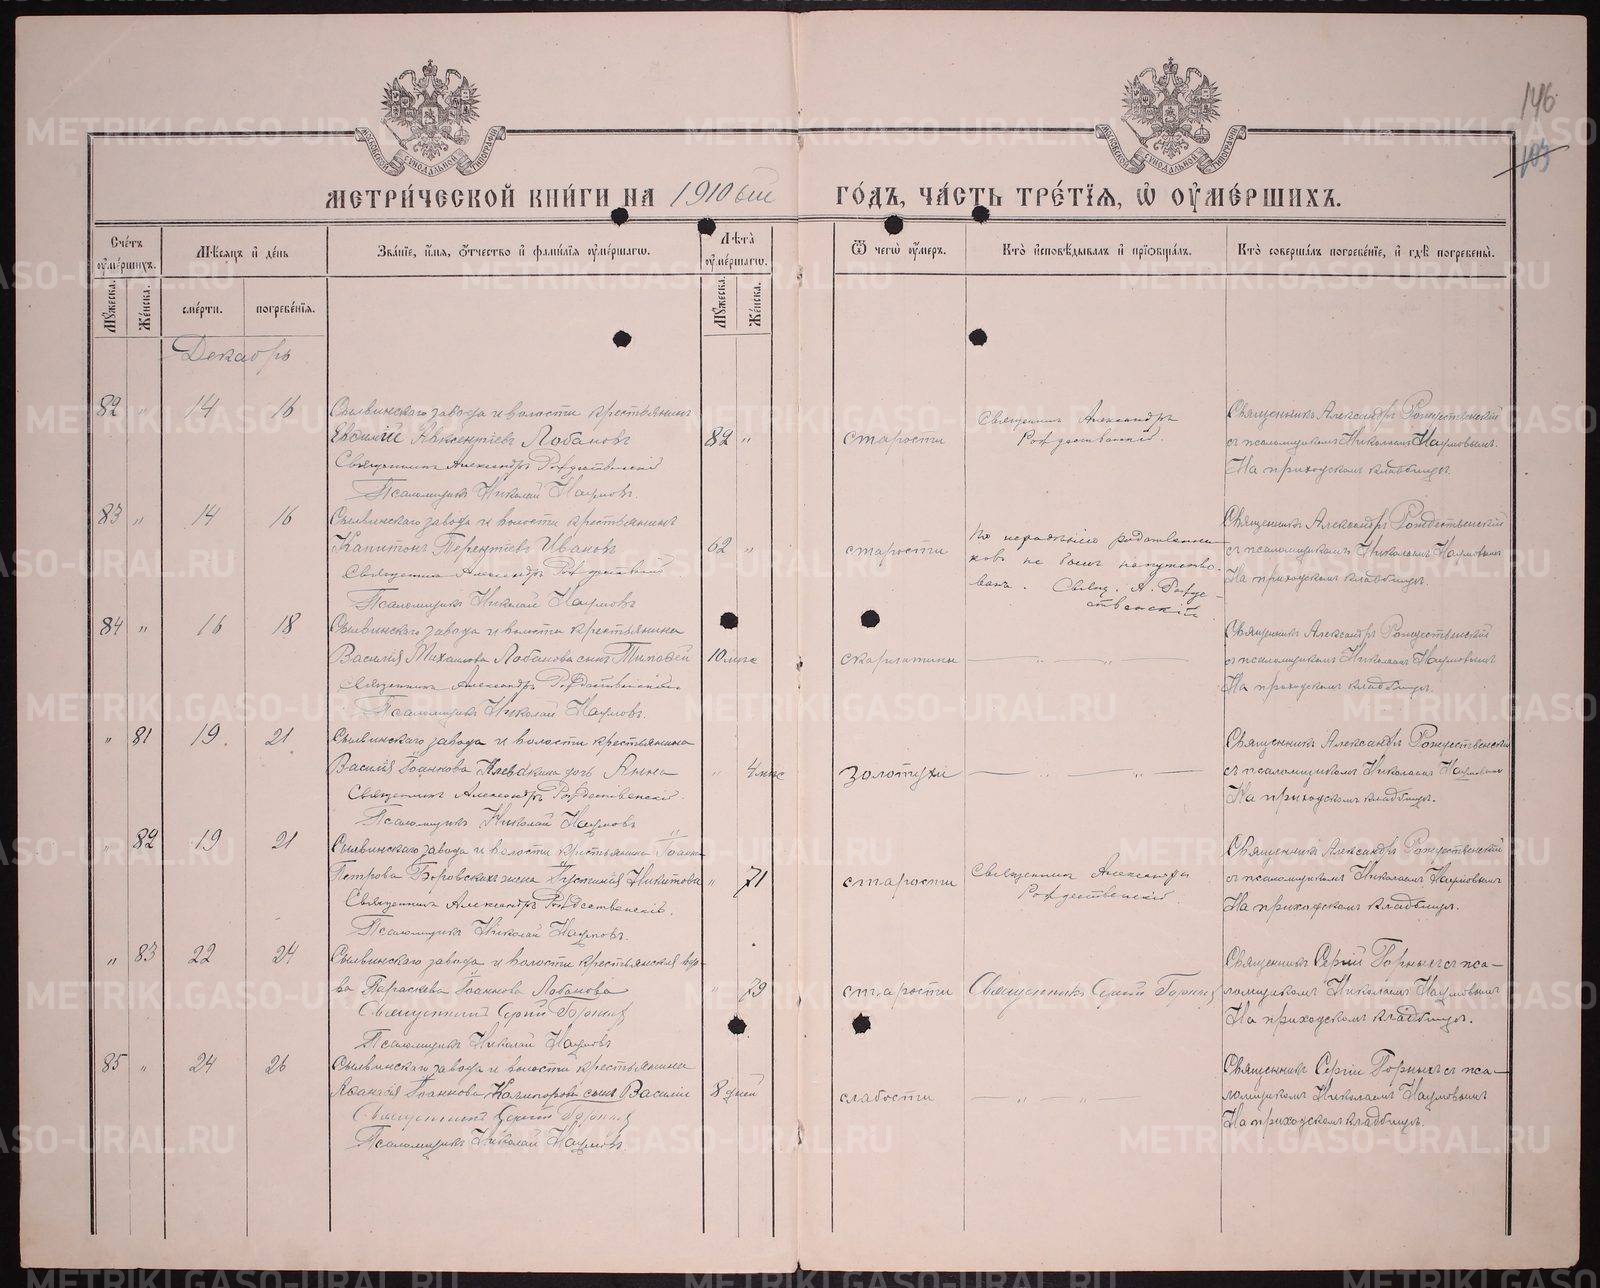 146
103
МЕТРИ́ЧЕСКОЙ КНИ́ГИ НА 1910 ый ГО́ДЪ, ЧА́СТЬ ТРЕ́ТІЯ, Ѡ ОУМЕ́РШИХЪ.
Сче́тъ оуме́ршихъ.
Мѣсяцъ и де́нь
Зва́ніе, и́мя, о́тчество и фами́лія оуме́ршагѡ.
Лѣта̀ оуме́ршагѡ.
Ѿ чегѡ̀ оу́меръ.
Кто̀ исповѣ́дывалъ и пріобща́лъ.
Кто̀ соверша́лъ погребе́ніе, и гдѣ̀ погребены̀.
Му́жеска. Же́нска. сме́рти. погребе́нія. Му́жеска. Же́нска.
Декабрь
82 " 14 16 Сылвинскаго завода и волости крестьянинъ
Евсигній Авксентіевъ Лобановъ 82 " старости
Священникъ Александръ Рождественскій
Псаломщикъ Николай Наумовъ.
Священникъ Александръ
Рождественскій.
Священникъ Александръ Рождественскій
съ псаломщикомъ Николаемъ Наумовымъ.
На приходскомъ кладбищѣ.
83 " 14 16 Сылвинскаго завода и волости крестьянинъ
Капитонъ Терентіевъ Ивановъ 62 " старости
Священникъ Александръ Рождественскій.
Псаломщикъ Николай Наумовъ
По нерадѣнію родственни-
ковъ не былъ напутство-
ванъ. Свящ. А. Рожде-
ственскій
Священникъ Александръ Рождественскій
съ псаломщикомъ Николаемъ Наумовымъ
На приходскомъ кладбищѣ.
84 " 16 18 Сылвинскаго завода и волости крестьянина
Василія Михаилова Лобанова сынъ Тимофей 10 мѣс скарлатины — " — " —
Священникъ Александръ Рождественскій.
Псаломщикъ Николай Наумовъ.
Священникъ Александръ Рождественскій
съ псаломщикомъ Николаемъ Наумовымъ
На приходскомъ кладбищѣ.
" 81 19 21 Сылвинскаго завода и волости крестьянина
Василія Іоаннова дочь Анна " 4 мѣс золотухи — " — " —
Священникъ Александръ Рождественскій.
Псаломщикъ Николай Наумовъ
Священникъ Александръ Рождественскій
съ псаломщикомъ Николаемъ Наумовымъ
На приходскомъ кладбищѣ.
" 82 19 21 Сылвинскаго завода и волости крестьянина Іоанна
Петрова Боровскихъ жена Іустинія Никитова " 71 старости
Священникъ Александръ Рождественскій.
Псаломщикъ Николай Наумовъ.
Священникъ Александръ
Рождественскій.
Священникъ Александръ Рождественскій
съ псаломщикомъ Николаемъ Наумовымъ
На приходскомъ кладбищѣ.
" 83 22 24 Сылвинскаго завода и волости крестьянская вдо-
ва Параскева Іоаннова Лобанова " 79 старости Священникъ Сергій Горныхъ
Священникъ Сергій Горныхъ
Псаломщикъ Николай Наумовъ
Священникъ Сергій Горныхъ съ пса-
ломщикомъ Николаемъ Наумовымъ
На приходскомъ кладбищѣ.
85 " 24 26 Сылвинскаго завода и волости крестьянина
Аѳанасія Іоаннова сынъ Василій 8 дней слабости — " — " —
Священникъ Сергій Горныхъ
Псаломщикъ Николай Наумовъ.
Священникъ Сергій Горныхъ съ пса-
ломщикомъ Николаемъ Наумовымъ
На приходскомъ кладбищѣ.
METRIKI.GASO-URAL.RU